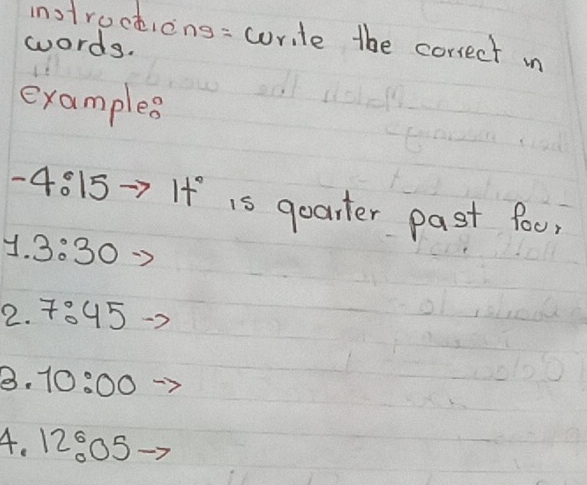 instructions = write the correct in
words.
Example:
- 4:15 → It is quarter past four
1. 3:30 →
2. 7:45 →
3. 10:00 →
4. 12:05 →